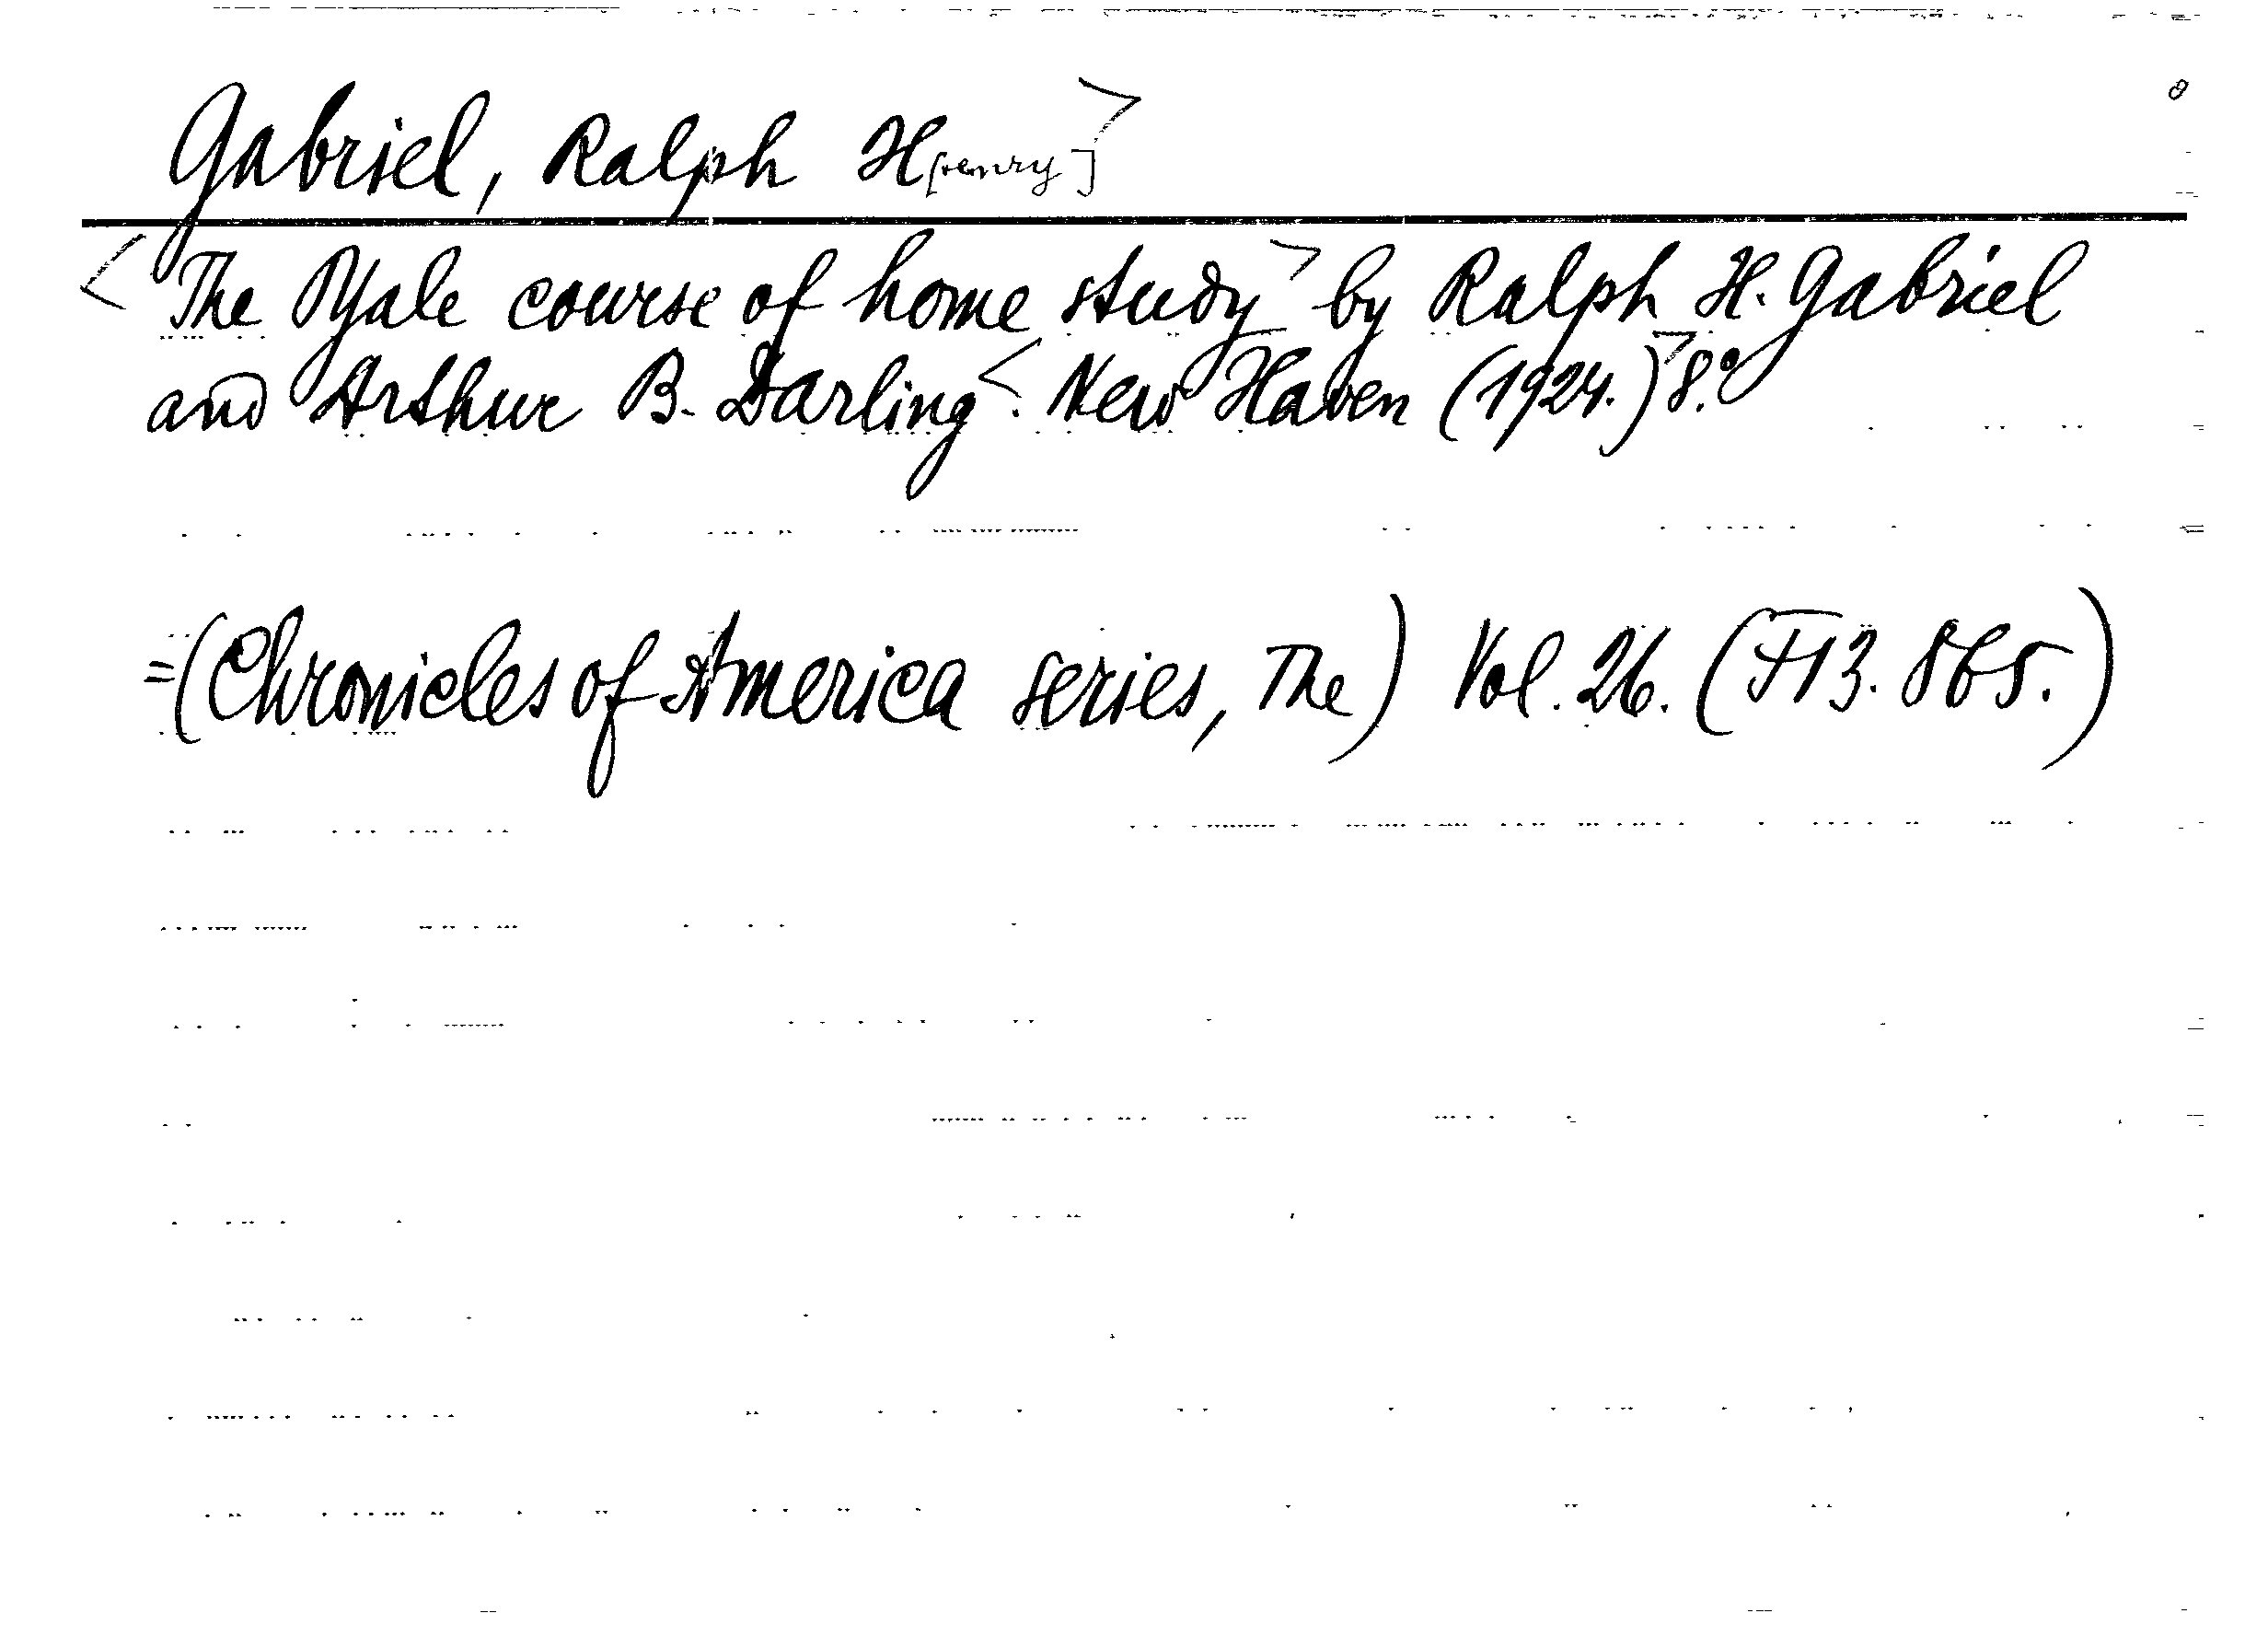 Gabriel, Ralph H[enry]>
<The Yale course of home study> by Ralph H. Gabriel
and Arthur B. Darling<. New Haven (1924.)> 8.°
=(Chronicles of America series, The) Vol. 26. (F13. 865.)